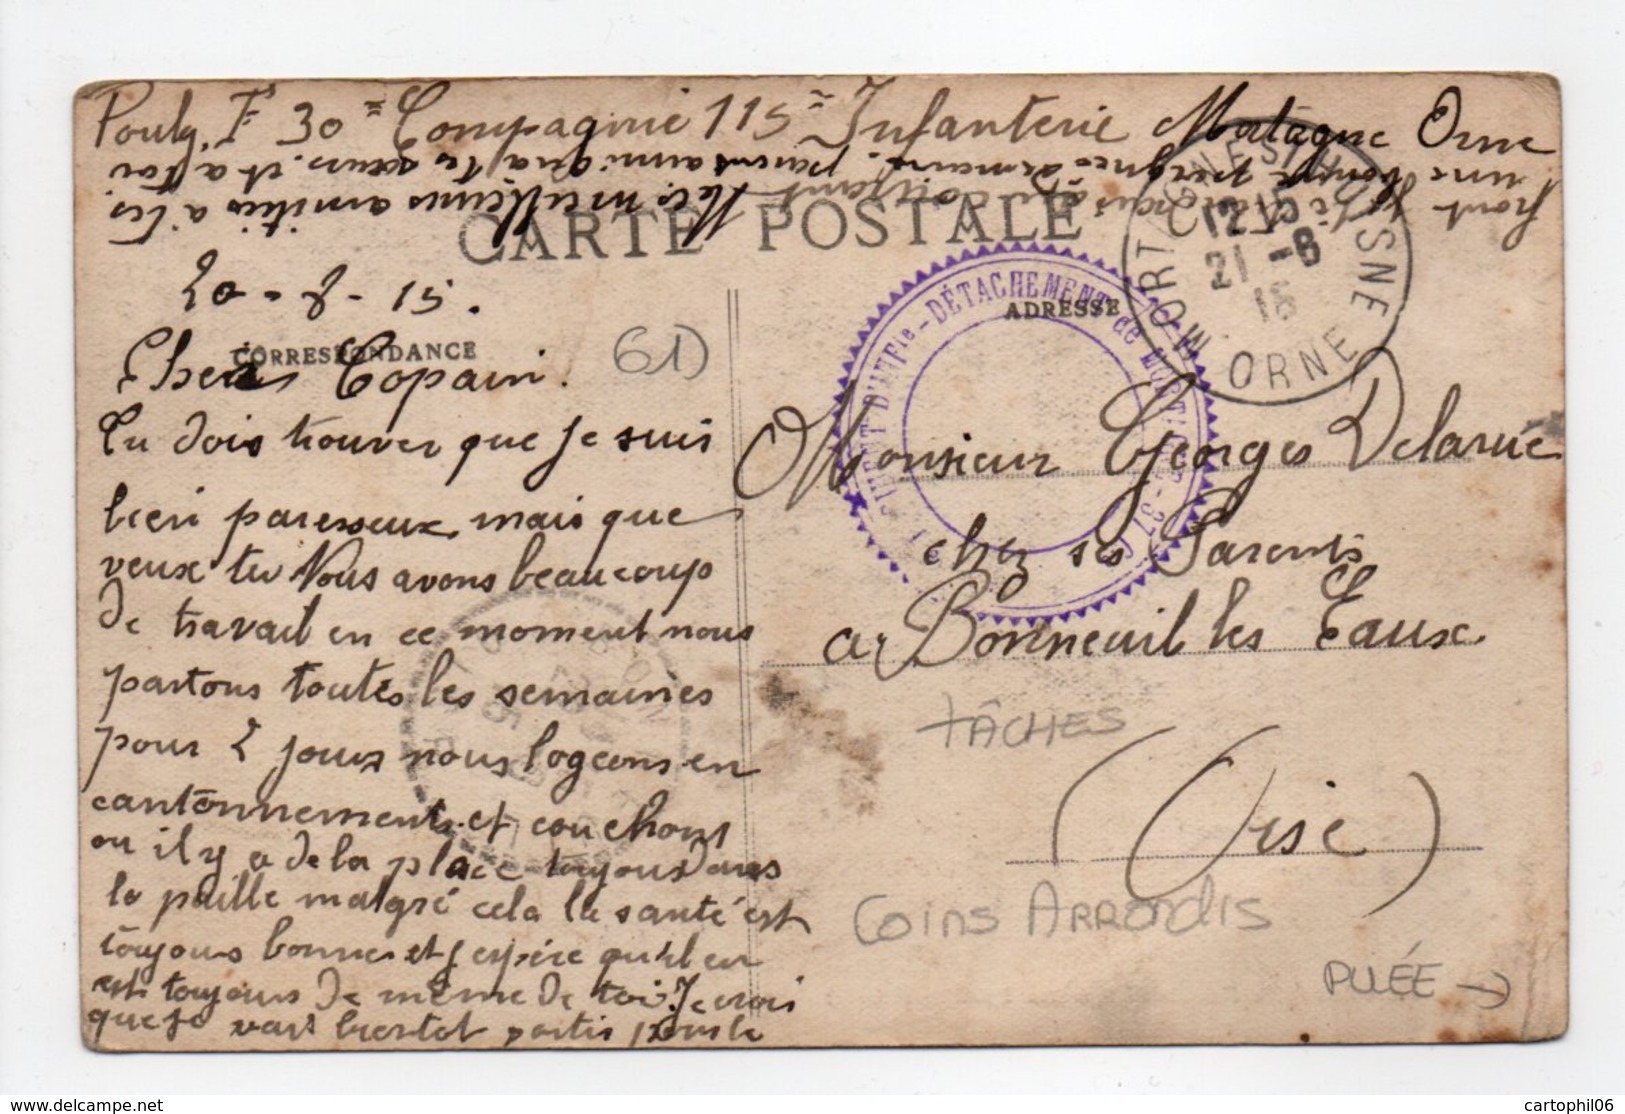 Pouly, F. 30e Compagnie 115e Infanterie Mortagne Orne
CARTE POSTALE
20-8-15.
CORRESPONDANCE
ADRESSE
61)
Chers Copain.
Tu dois trouver que je suis
bien paresseux mais que
veux tu Nous avons beaucoup
de travail en ce moment nous
partons toutes les semaines
pour 2 jours nous logeons en
cantonnements et couchons
ou il y a de la place toujours dans
la paille malgré cela la santé est
toujours bonne et j'espère qu'il en
est toujours de même de toi. Je crois
que je vais bientot partis pour le
front
une bonne
parents ainsi qu'a tes sœurs. et a toi
Mes meilleures amitiés a tes
Monsieur Georges Delarue
chez ses Parents
a Bonneuil les Eaux
(Oise)
DÉTACHEMENT de MORTAGNE
MORTAGNE S/ HUISNE
12 15
21 -8
15
ORNE
TÂCHES
COINS ARRONDIS
PLIÉE →
delcampe.net
cartophil06